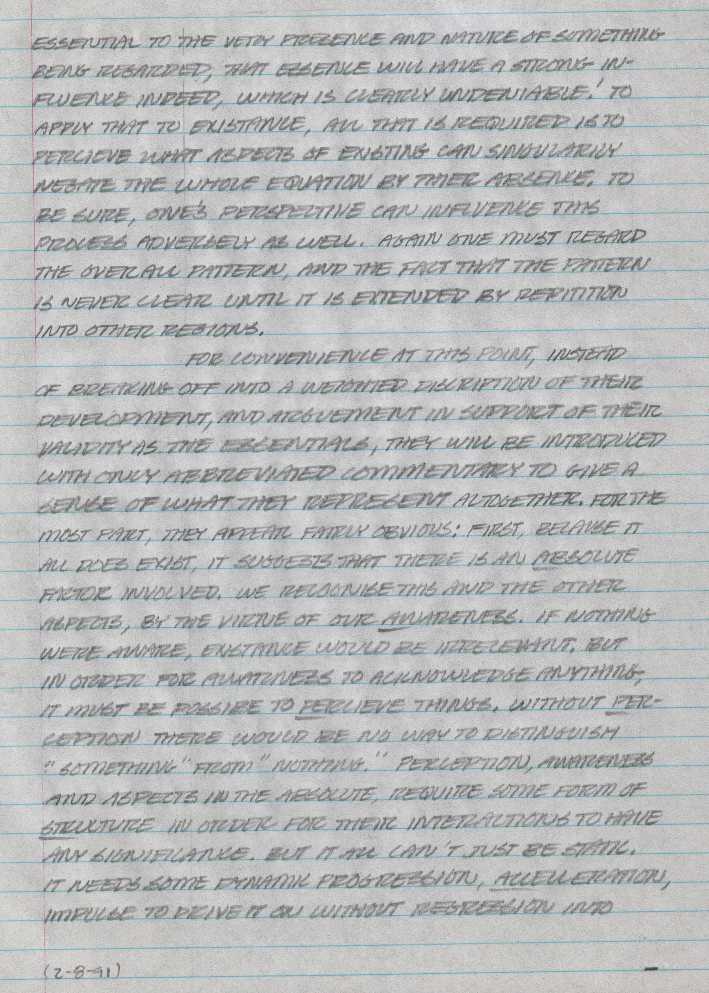 ESSENTIAL TO THE VERY PRESENCE AND NATURE OF SOMETHING
BEING REGARDED, THAT ESSENCE WILL HAVE A STRONG IN-
FLUENCE INDEED, WHICH IS CLEARLY UNDENIABLE.' TO
APPLY THAT TO EXISTANCE, ALL THAT IS REQUIRED IS TO
PERCIEVE WHAT ASPECTS OF EXISTING CAN SINGULARILY
NEGATE THE WHOLE EQUATION BY THIER ABSENCE. TO
BE SURE, ONE'S PERSPECTIVE CAN INFLUENCE THIS
PROCESS ADVERSELY AS WELL. AGAIN ONE MUST REGARD
THE OVERALL PATTERN, AND THE FACT THAT THE PATTERN
IS NEVER CLEAR UNTIL IT IS EXTENDED BY REPITITION
INTO OTHER REGIONS.
FOR CONVENIENCE AT THIS POINT, INSTEAD
OF BREAKING OFF INTO A WEIGHTED DISCRIPTION OF THEIR
DEVELOPMENT, AND ARGUEMENT IN SUPPORT OF THEIR
VALIDITY AS THE ESSENTIALS, THEY WILL BE INTRODUCED
WITH ONLY ABBREVIATED COMMENTARY TO GIVE A
SENSE OF WHAT THEY REPRESENT ALTOGETHER. FOR THE
MOST PART, THEY APPEAR FAIRLY OBVIOUS: FIRST, BECAUSE IT
ALL DOES EXIST, IT SUGGESTS THAT THERE IS AN ABSOLUTE
FACTOR INVOLVED. WE RECOGNISE THIS AND THE OTHER
ASPECTS, BY THE VIRTUE OF OUR AWARENESS. IF NOTHING
WERE AWARE, EXISTANCE WOULD BE IRRELEVANT. BUT
IN ORDER FOR AWARNESS TO ACKNOWLEDGE ANYTHING,
IT MUST BE POSSIBE TO PERCIEVE THINGS. WITHOUT PER-
CEPTION THERE WOULD BE NO WAY TO DISTINGUISH
"SOMETHING" FROM "NOTHING." PERCEPTION, AWARENESS
AND ASPECTS IN THE ABSOLUTE, REQUIRE SOME FORM OF
STRUCTURE IN ORDER FOR THEIR INTERACTIONS TO HAVE
ANY SIGNIFICANCE. BUT IT ALL CAN'T JUST BE STATIC.
IT NEEDS SOME DYNAMIC PROGRESSION, ACCELLERATION,
IMPULSE TO DRIVE IT ON WITHOUT REGRESSION INTO
(2-8-91)